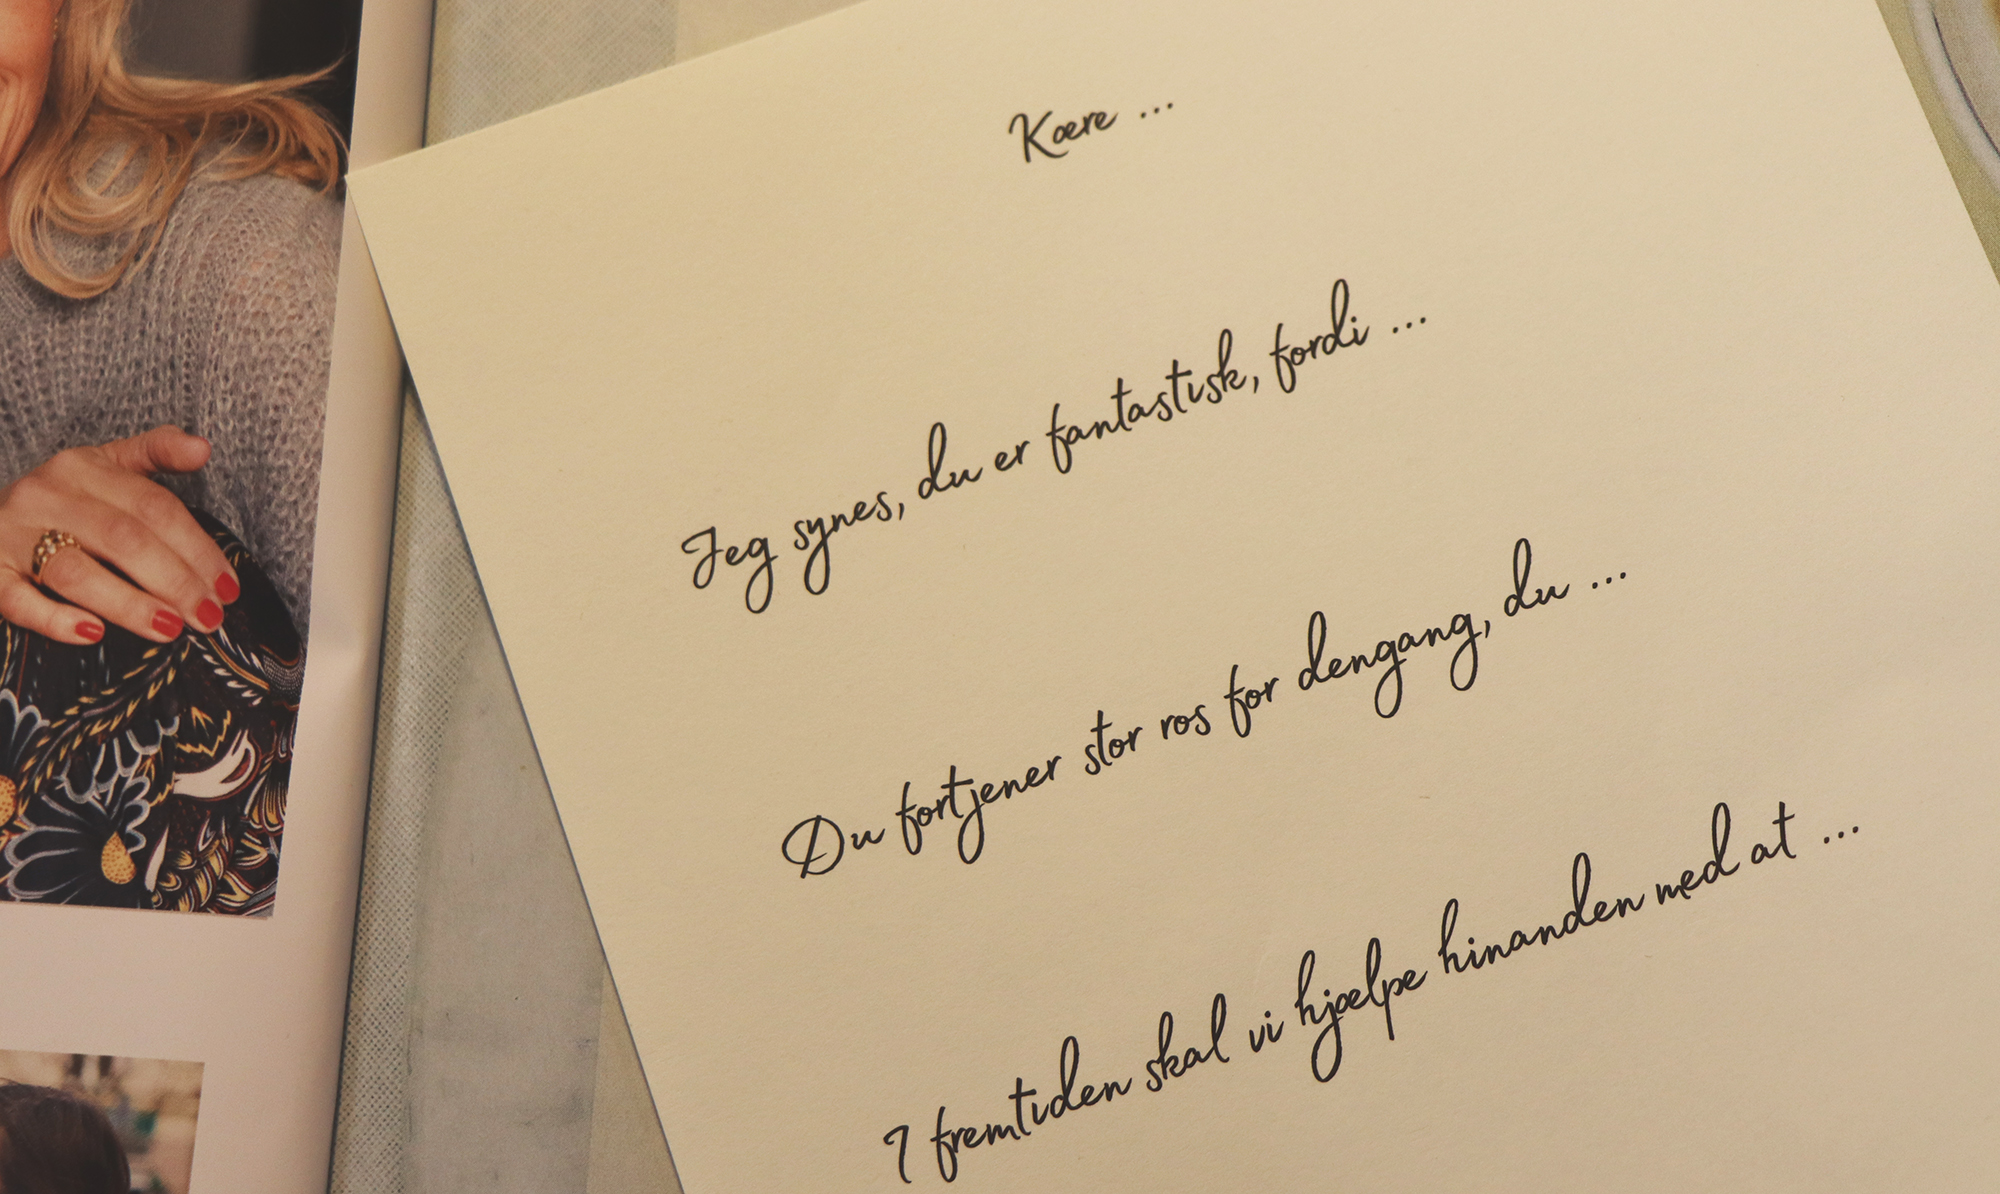 Kære ...
Jeg synes, du er fantastisk, fordi ...
Du fortjener stor ros for dengang, du ...
I fremtiden skal vi hjælpe hinanden med at ...